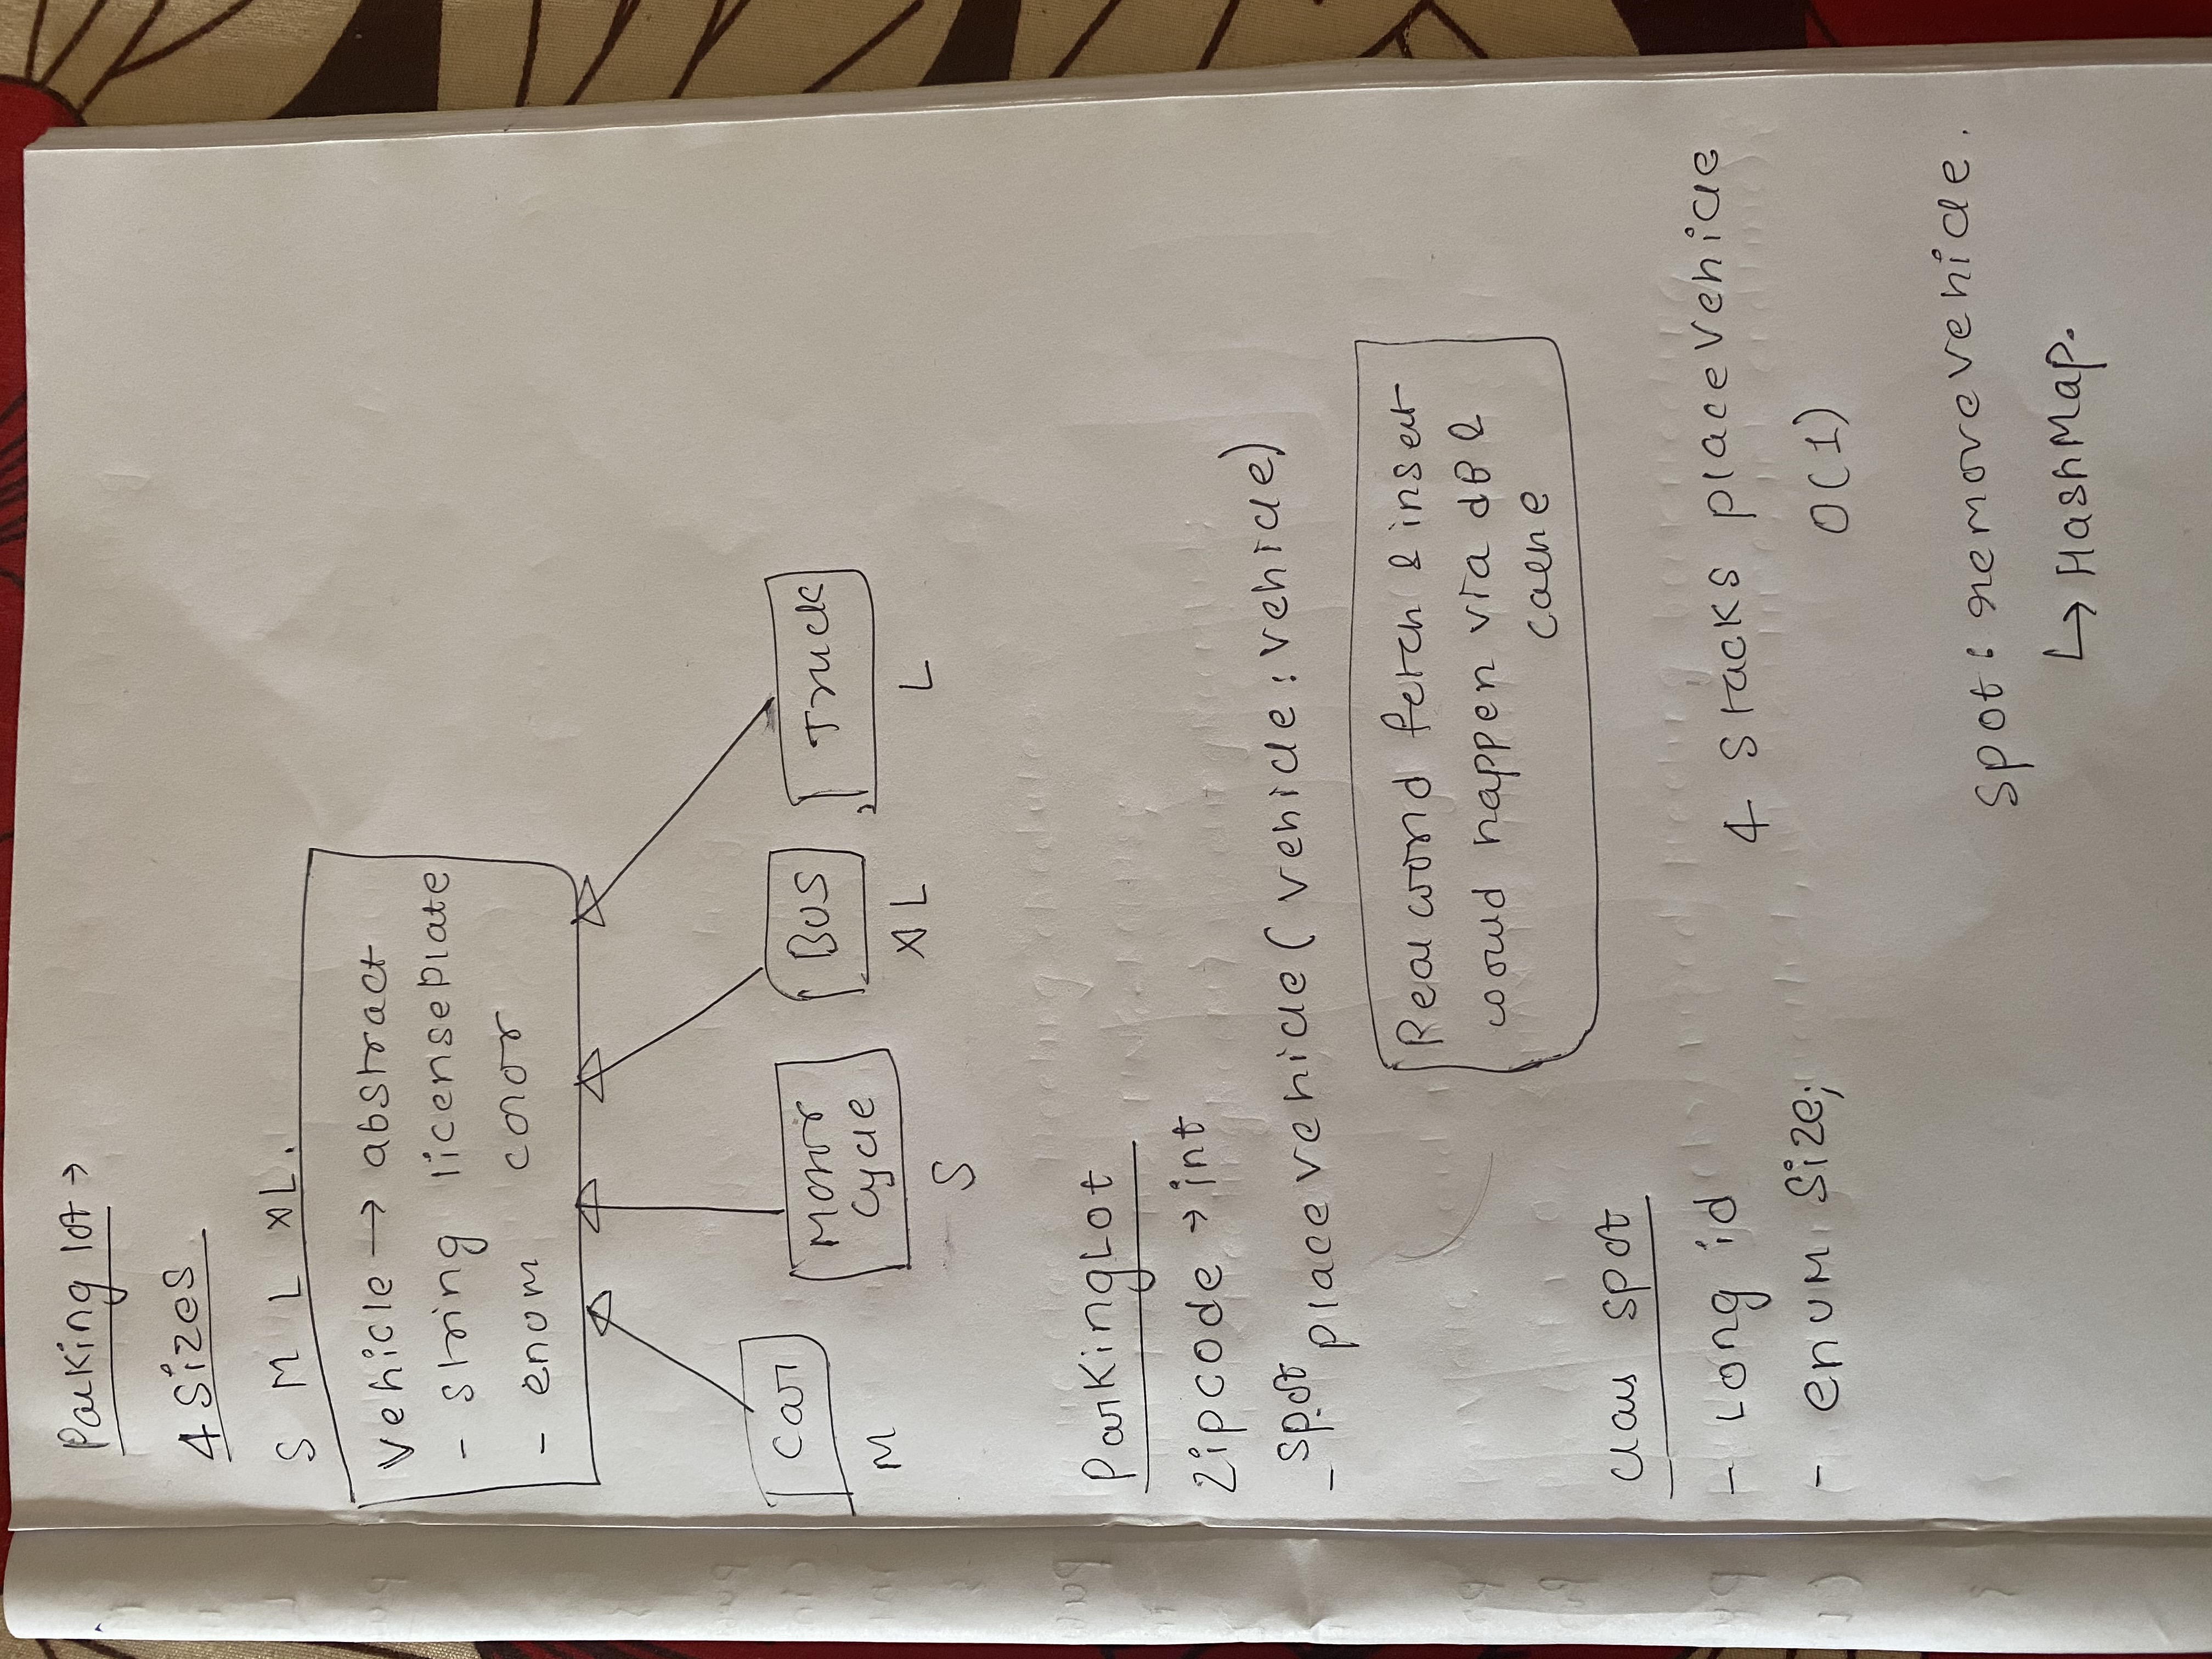 Parking lot →
4 sizes
S M L XL.
Vehicle → abstract
- string licensePlate
- enum color
Car
Motor
cycle
Bus
Truck
M
S
XL
L
ParkingLot
Zipcode → int
- spot placeVehicle (vehicle : vehicle)
Real world fetch & insert
would happen via dB &
cache
class spot
- Long id
- enum size;
4 stacks placeVehicle
O(1)
spot : removeVehicle.
↳ HashMap.